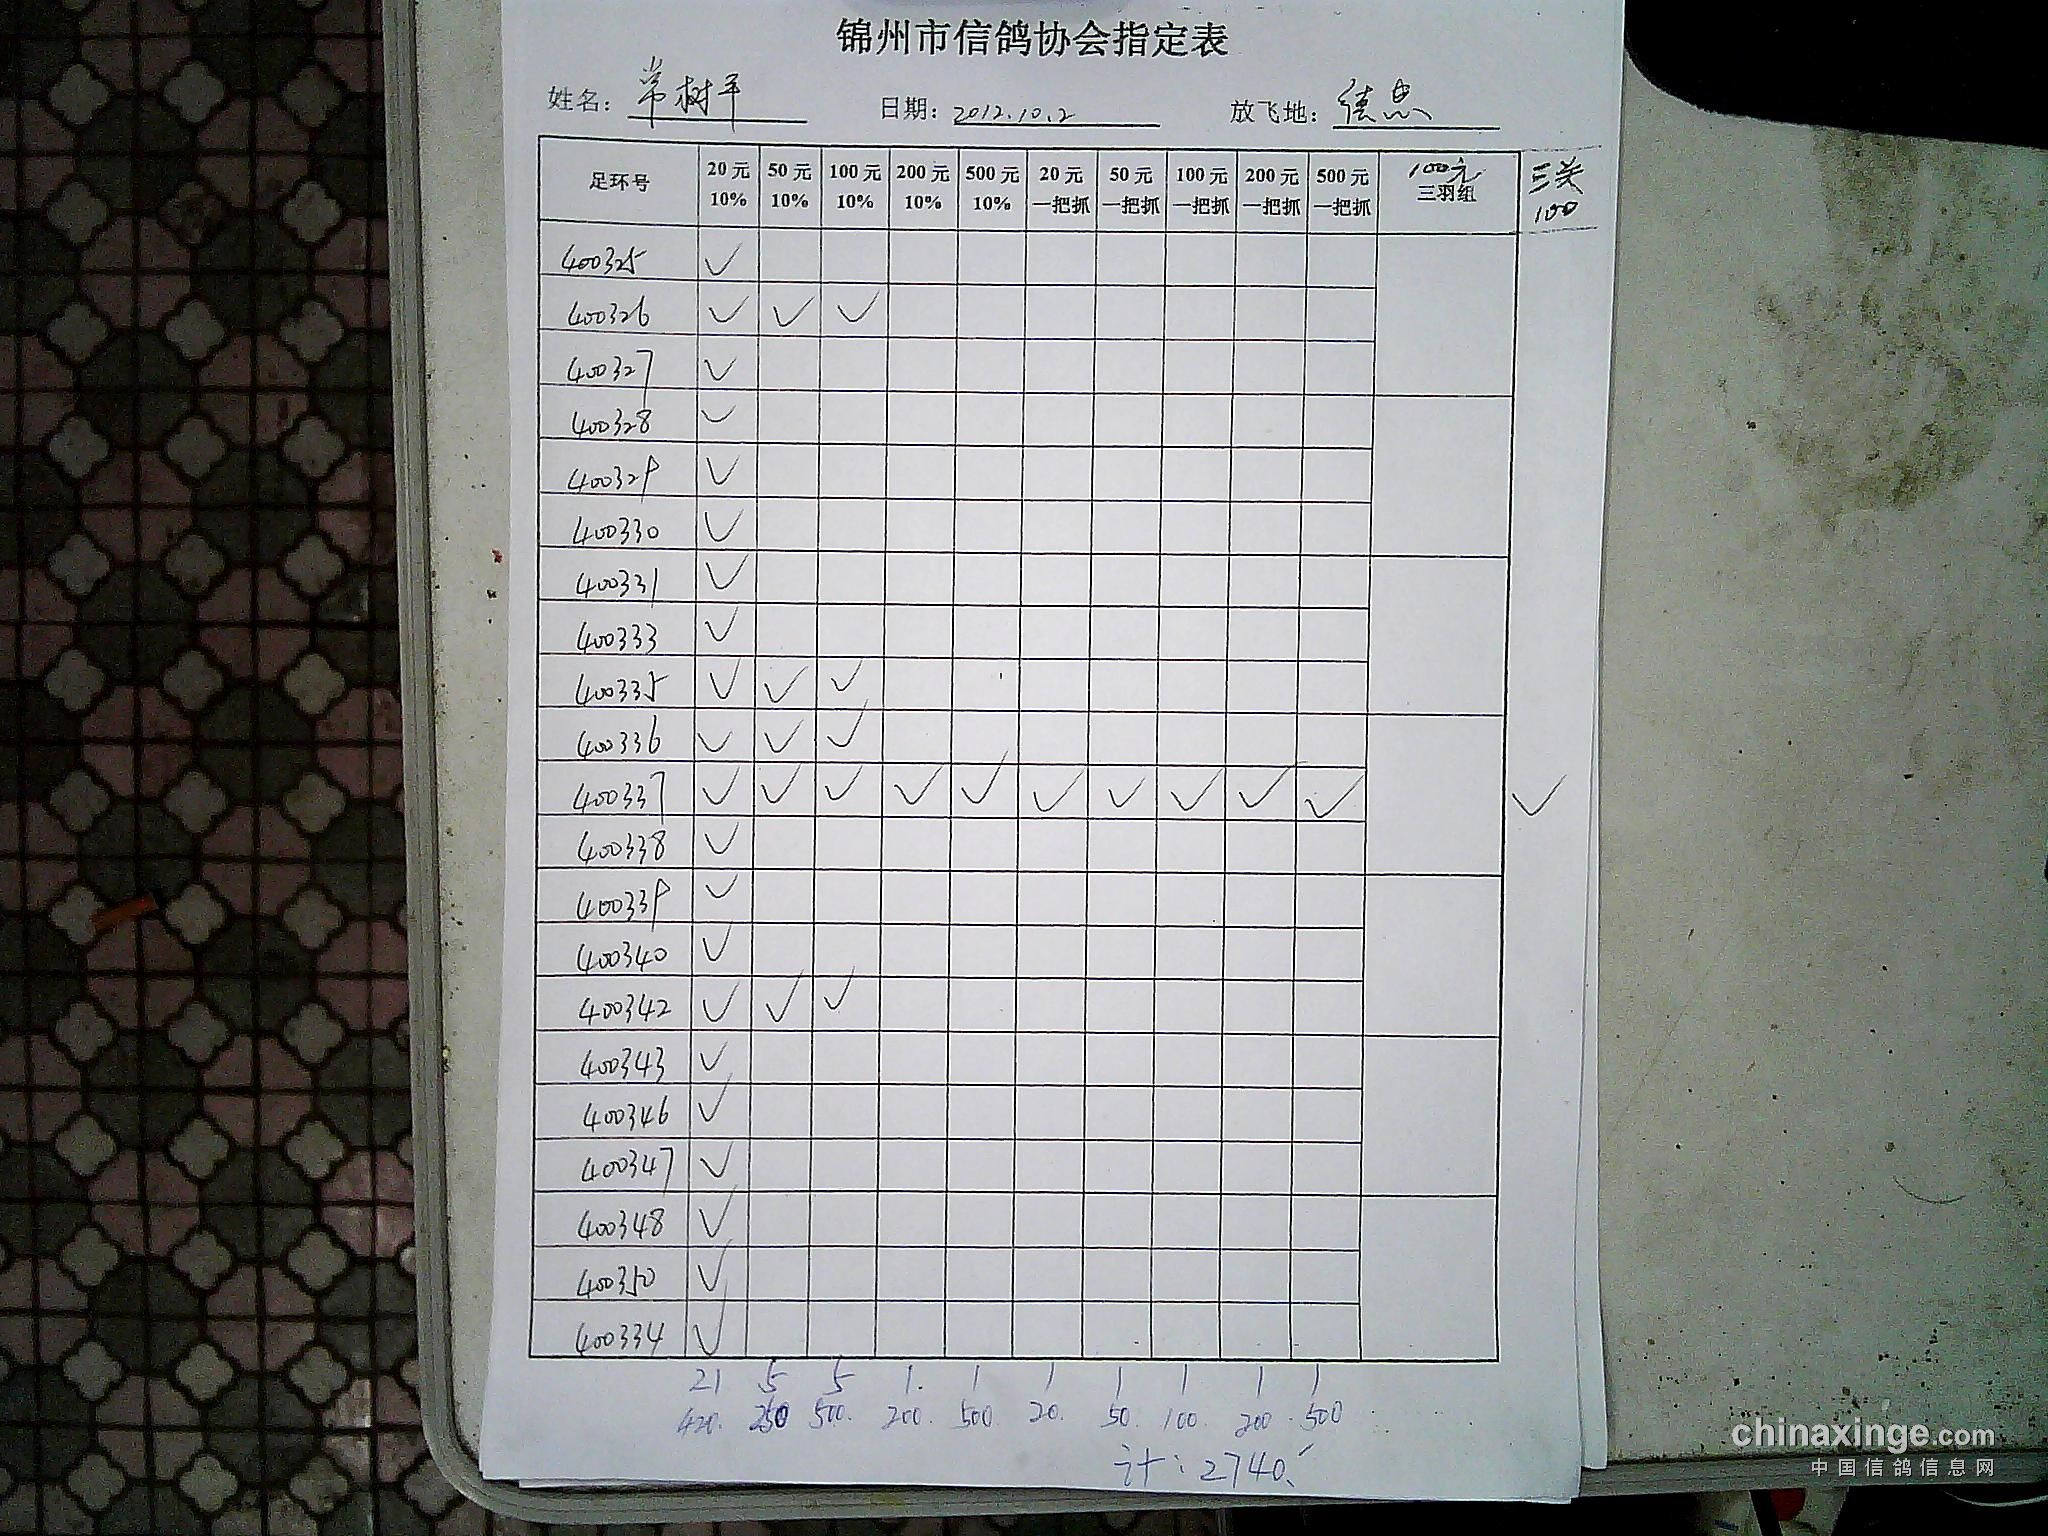 锦州市信鸽协会指定表
姓名: 常树平 日期: 2012.10.2 放飞地: 德惠
足环号 20元 10% 50元 10% 100元 10% 200元 10% 500元 10% 20元 一把抓 50元 一把抓 100元 一把抓 200元 一把抓 500元 一把抓 100元 三羽组 三关 100
400325 ✓
400326 ✓ ✓ ✓
400327 ✓
400328 ✓
400329 ✓
400330 ✓
400331 ✓
400333 ✓
400335 ✓ ✓ ✓
400336 ✓ ✓ ✓
400337 ✓ ✓ ✓ ✓ ✓ ✓ ✓ ✓ ✓ ✓ ✓
400338 ✓
400339 ✓
400340 ✓
400342 ✓ ✓ ✓
400343 ✓
400346 ✓
400347 ✓
400348 ✓
400350 ✓
400334 ✓
21 5 5 1. 1 1 1 1 1 1
420. 250 500. 200. 500. 20. 50. 100. 200. 500
计: 2740.
chinaxinge.com
中国信鸽信息网